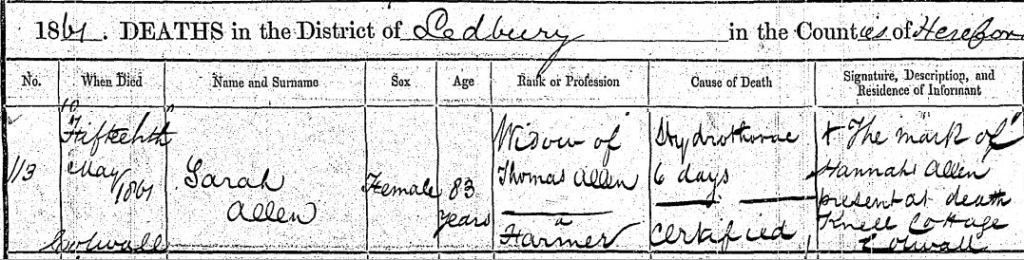 1861. DEATHS in the District of Ledbury in the Counties of Herefor
No. When Died Name and Surname Sex Age Rank or Profession Cause of Death Signature, Description, and Residence of Informant
113
Fifteenth
May 1861
Colwall
Sarah
Allen
Female
83
years
Widow of
Thomas Allen
a
Farmer
Hydrothorax
6 days
Certified
X The mark of
Hannah Allen
present at death
Knell Cottage
Colwall